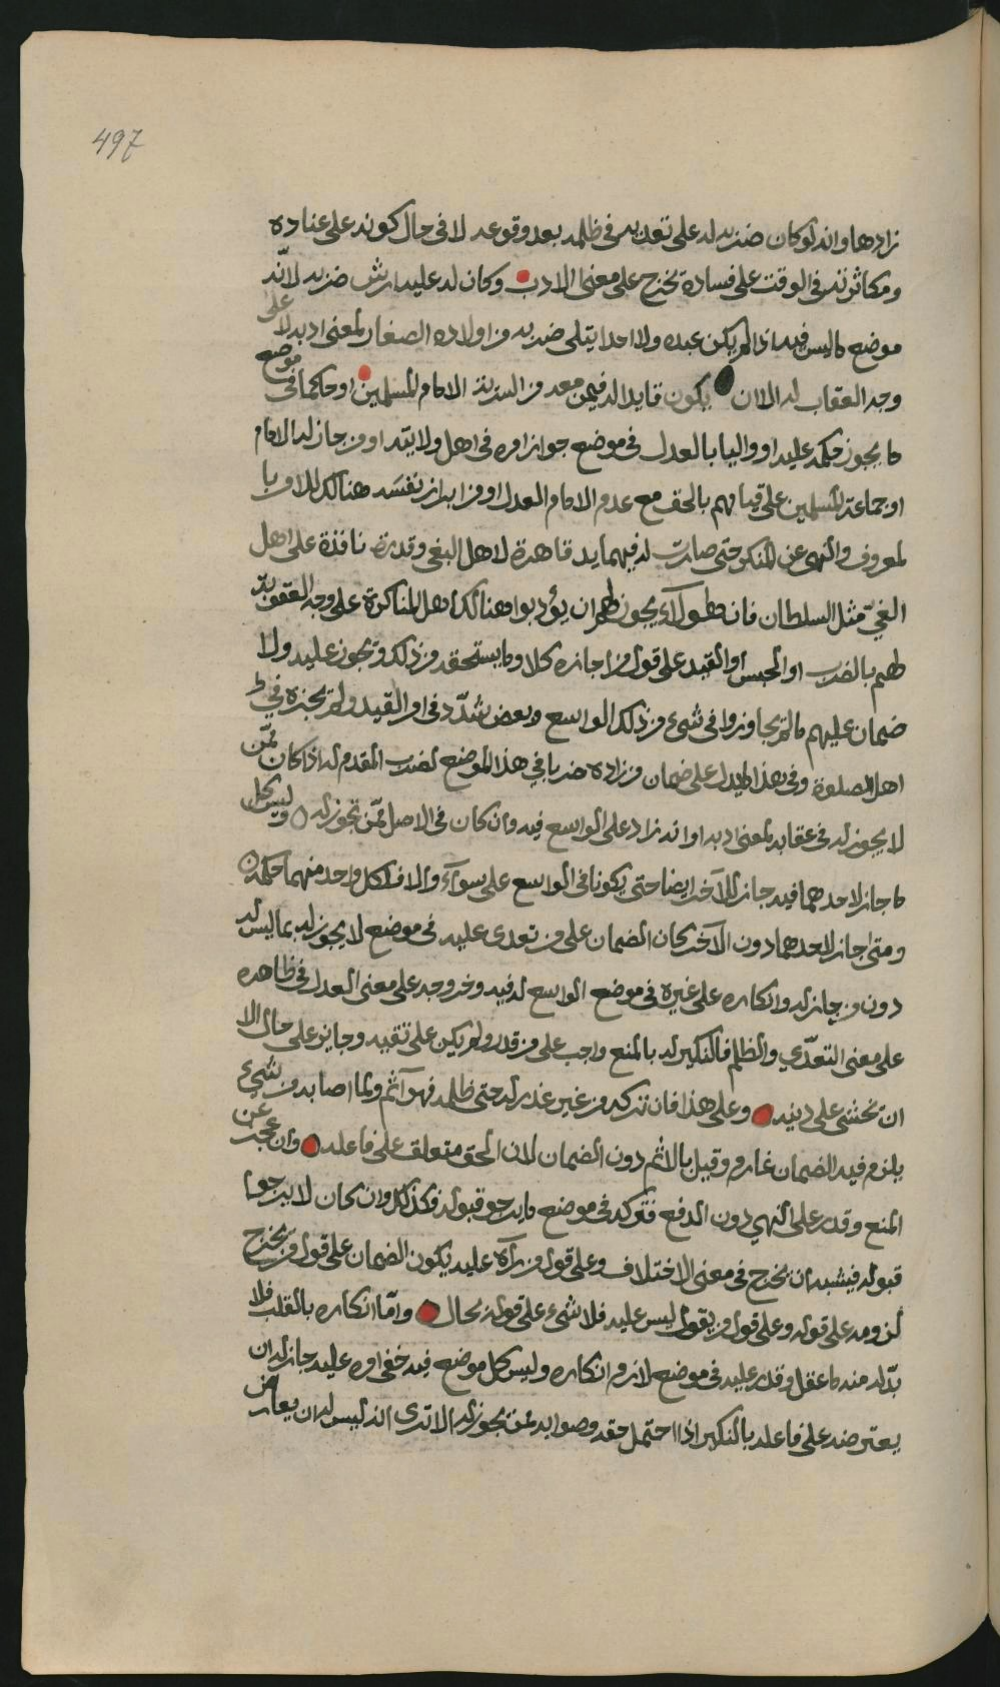 497
زادها وانه لو كان ضربه له على تعديه في ظلمه بعد وقوعه لا في حال كونه على عناده
ومكاثرته في الوقت على فساده يخرج على معنى الادب وكان له عليه ارش ضربه لانّه
موضع ما ليس فيه اذا لم يكن عبده ولا احدا يتلى ضربه من اولاده الصغار لمعنى ادبه لا على
وجه العقاب له الا ان يكون قايدا له فيمن معه من السرية الامام المسلمين او حاكما في موضع
ما يجوز حكمه عليه او واليا بالعدل في موضع جواز امره في اهل ولايته او من جاز له الامام
او جماعة المسلمين على قيامهم بالحق مع عدم الامام العدل او من ابرز نفسه هنالك للامر با
لمعروف والنهي عن المنكر حتى صارت له فيهما يد قاهرة لاهل البغي وقدرة نافذة على اهل
الغيّ مثل السلطان فان هؤلاء يجوز لهم ان يؤدبوا هنالك اهل المناكرة على وجه العقوبة
لهم بالضرب او الحبس او القيد على قول من اجازه كلا وما يستحقه من ذلك ويجوز عليه ولا
ضمان عليهم ما لم يجاوزوا في شيء من ذلك الواسع وبعض شدّد في امر القيد ولم يجزه في
اهل الصلوة وفي هذا ما يدل على ضمان من زاده ضربا في هذا الموضع لضرب المقدم له اذا كان ممّن
لا يجوز له في عقابه لمعنى ادبه او انه زاد على الواسع فيه وان كان في الاصل ممّن تجوز له وليس كل
ما جاز لاحدهما فيه جاز للآخر ايضا حتى يكونا في الواسع على سوآء والا فلكل واحد منهما حكمه
ومتى اجاز لاحدهما دون الآخر كان الضمان على من تعدى عليه في موضع لا يجوز له بما ليس له
دون من جاز له وانكاره على غيره في موضع الواسع له فيه وخروجه على معنى العدل في ظاهره
على معنى التعدّي والظلم فالنكير له بالمنع واجب على من قدر ولم يكن على تقيه وجايز على حال الا
ان تخشى على دينه وعلى هذا فان تركه من غير عذر له حتى ظلمه فهو آثم ولما اصابه من شيء
يلزم فيه الضمان غارم وقيل بالاثم دون الضمان لان الحق متعلق على فاعله وان عجز عن
المنع وقدر على النهي دون الدفع فتركه في موضع ما يرجو قبوله فكذلك وان كان لا يرجوا
قبوله فيشبه ان يخرج في معنى الاختلاف وعلى قول من رآه عليه يكون الضمان على قول من يخرج
لزومه على قوله وعلى قول من يقول ليس عليه فلا شيء على قوله بحال وامّا انكاره بالقلب فلا
بدّ له منه ما عقل وقدر عليه في موضع لازم انكاره وليس كل موضع فيه خفي امره عليه جاز له ان
يعترضه على فاعله بالنكير اذا احتمل حقه وصوابه ممن يجوز له الا ترى انه ليس له ان يعارض